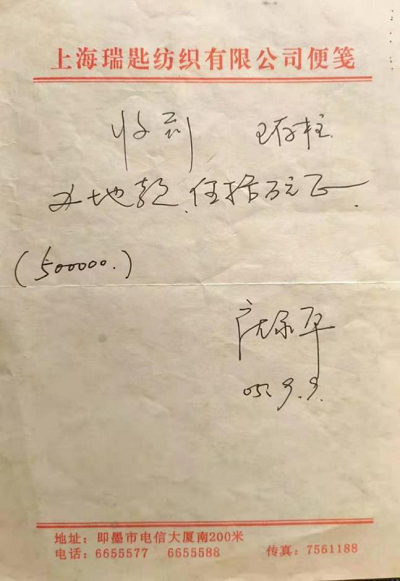 上海瑞匙纺织有限公司便笺
收到 王存柱
地款.伍拾万元正.
(500000.)
05.9.9.
地址：即墨市电信大厦南200米
电话：6655577 6655588 传真：7561188